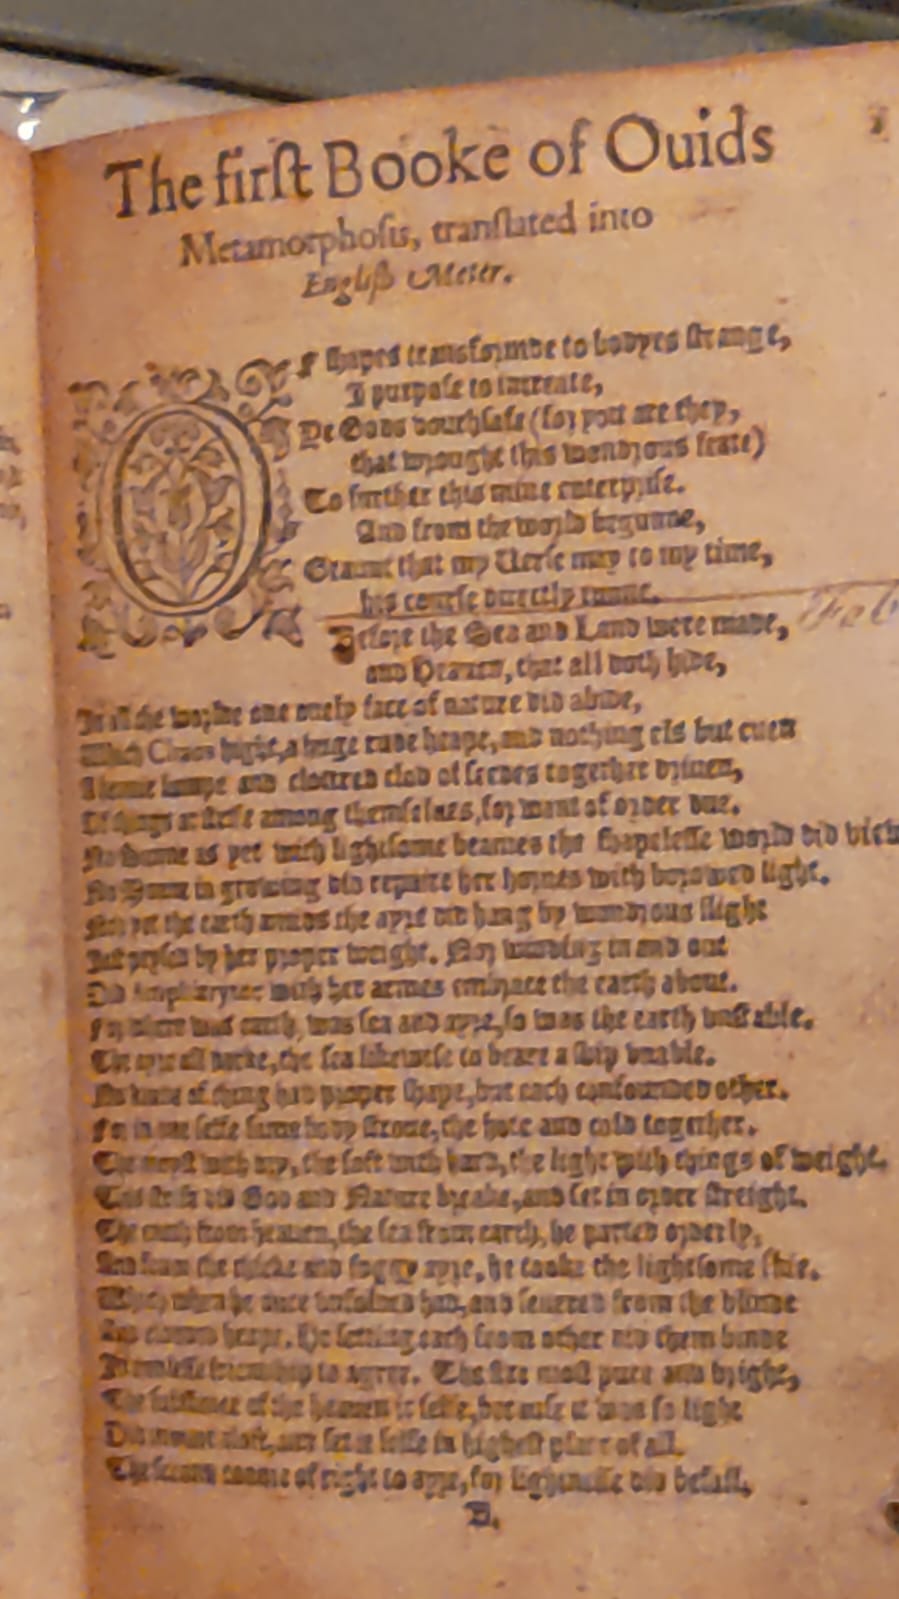 The first Booke of Ouids
Metamorphosis, translated into
English Meter.
OF shapes transformde to bodyes strange,
I purpose to intreate,
Ye Gods vouchsafe (for you are they,
that wrought this wondrous feate)
To further this mine enterpryse.
And from the world begunne,
Graunt that my Verse may to my time,
his course directly runne.
Before the Sea and Land were made,
and Heauen, that all doth hide,
In all the worlde one onely face of nature did abide,
Which Chaos hight, a huge rude heape, and nothing els but euen
A heauie lumpe and clottred clod of seedes together driuen,
Of things at strife among themselues, for want of order due.
No sunne as yet with lightsome beames the shapelesse world did view
No Moone in growing did repaire her hornes with borowed light.
Nor yet the earth amids the ayre did hang by wondrous slight
Iust peysed by her proper weight. Nor winding in and out
Did Amphitryte with her armes embrace the earth about.
For where was earth, was sea and ayre, so was the earth vnstable.
The ayre all darke, the sea likewise to beare a ship vnable.
No kinde of thing had proper shape, but each confounded other.
For in one selfe same body stroue, the hote and cold together.
The moyst with dry, the soft with hard, the light with things of weight.
This strife did God and Nature breake, and set in order streight.
The earth from heauen, the sea from earth, he parted orderly,
And from the thicke and foggy ayre, he tooke the lightsome skie.
Which when he once vnfolded had, and seuered from the blinde
And clodded heape. He setting each from other did them binde
In endlesse friendship to agree. The fire most pure and bright,
The substance of the heauen it selfe, because it was so light
Did mount aloft, and set it selfe in highest place of all.
The second roome of right to ayre, for lightnesse did befall.
B.